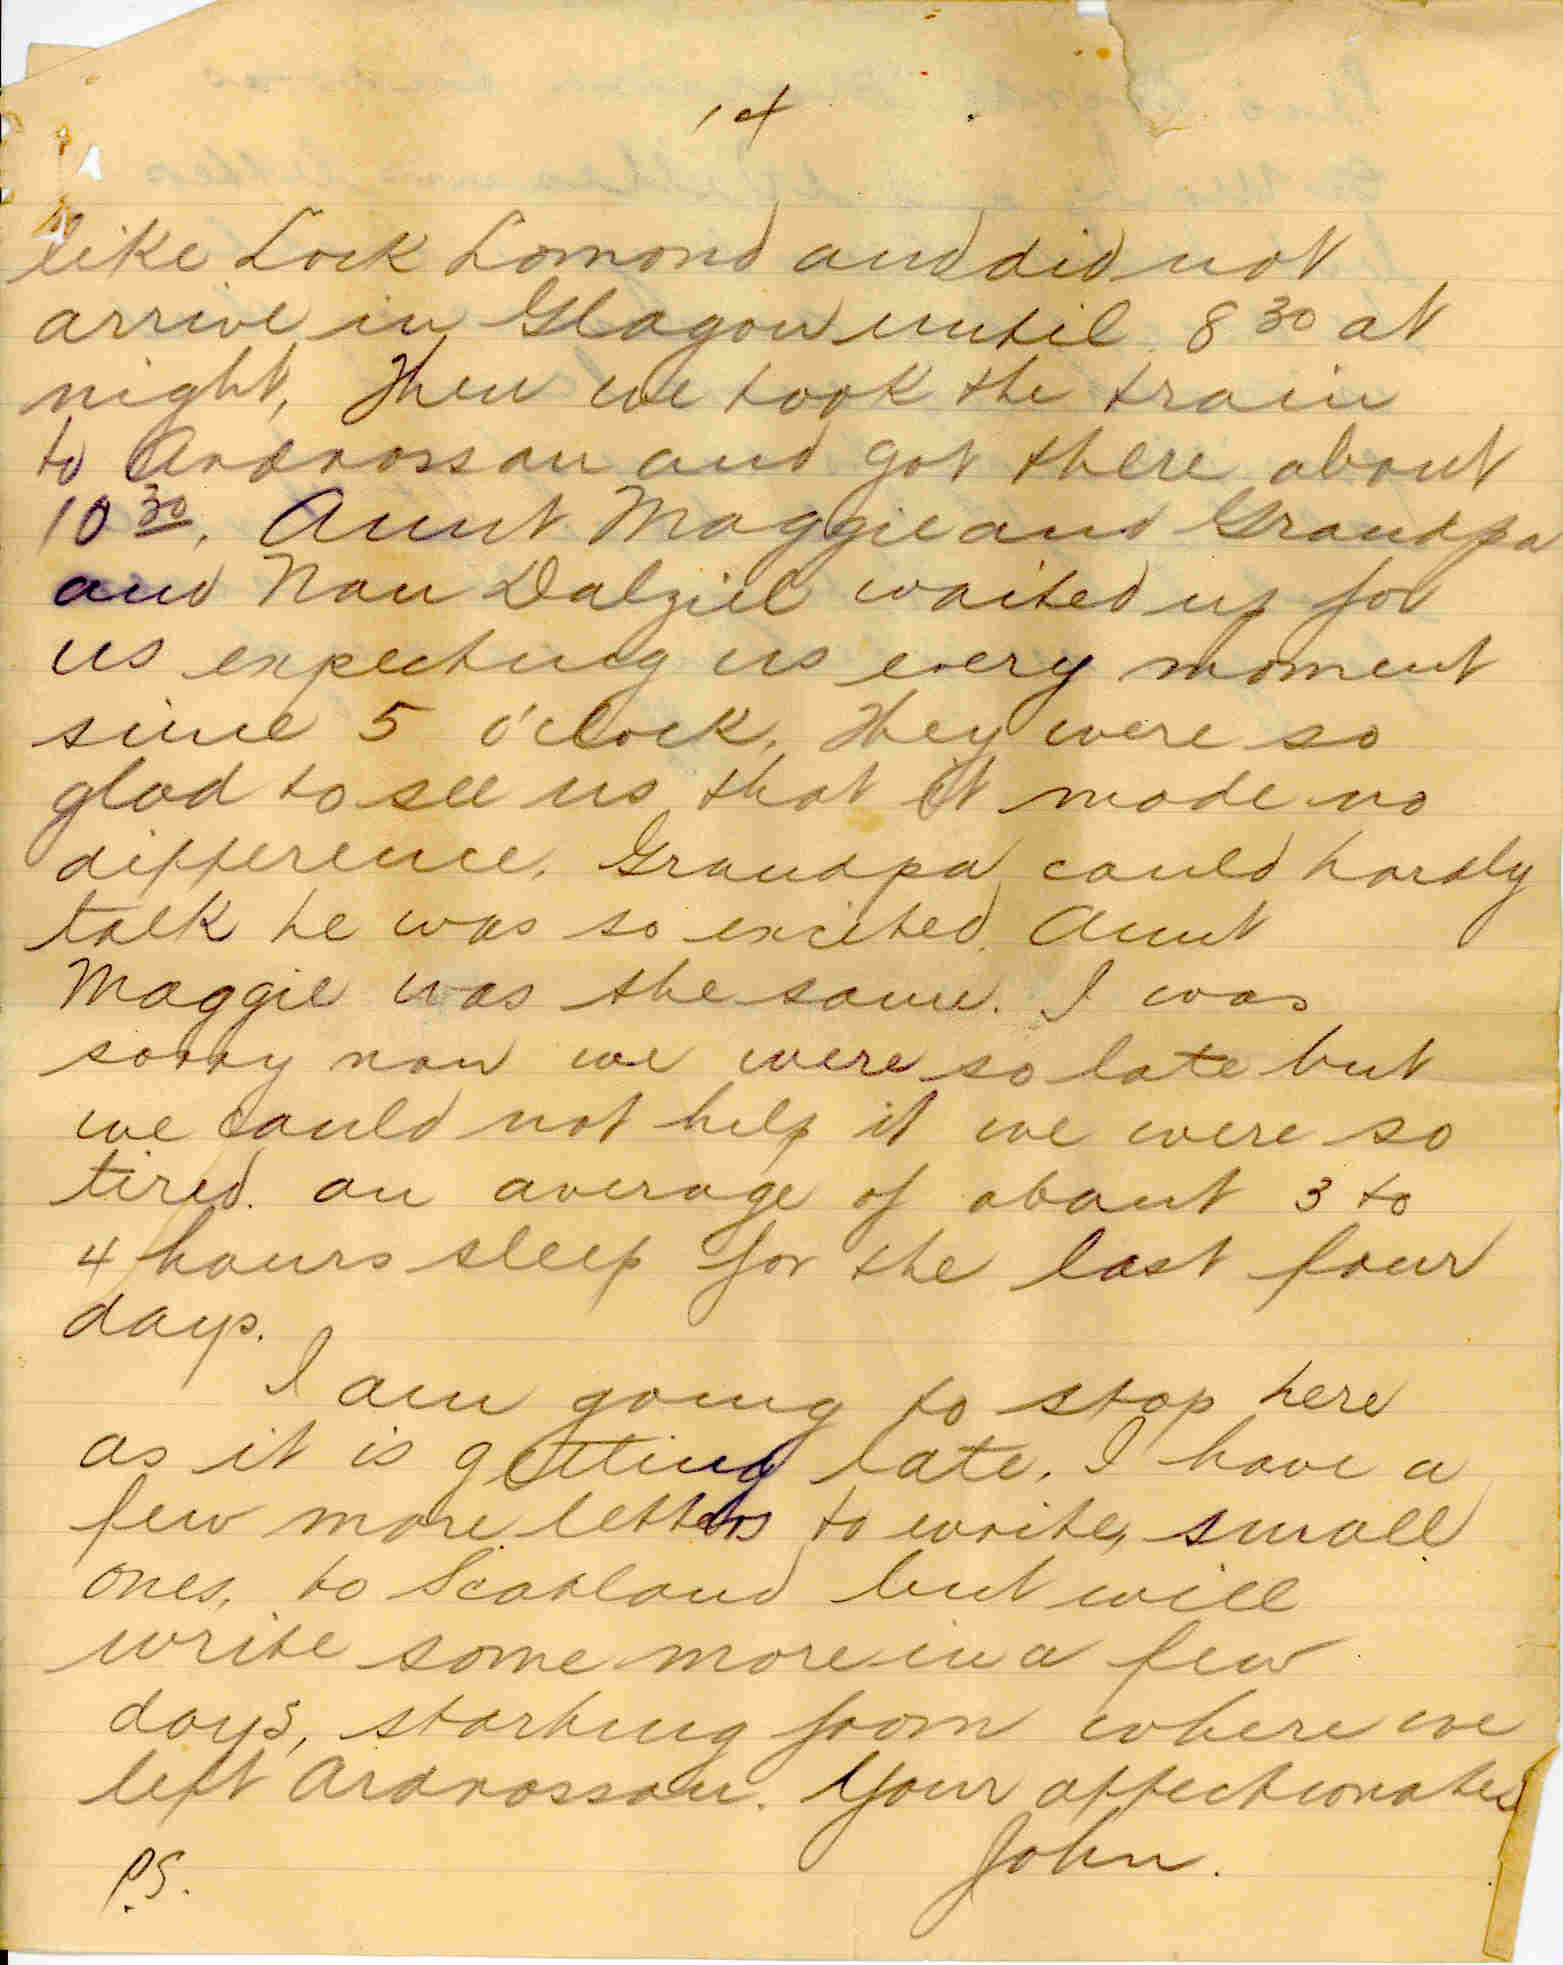 14
like Lock Lomond and did not
arrive in Glagow until 8 30 at
night, Then we took the train
to Ardrossan and got there about
10 30, Aunt Maggie and Grandpa
and Nan Dalziel waited up for
us expecting us every moment
since 5 o'clock, They were so
glad to see us that it made no
difference, Grandpa could hardly
talk he was so excited. Aunt
Maggie was the same. I was
sorry now we were so late but
we could not help it we were so
tired. an average of about 3 to
4 hours sleep for the last four
days.
I am going to stop here
as it is getting late. I have a
few more letters to write, small
ones, to Scotland but will
write some more in a few
days, starting from where we
left Ardrossan. Your affectionates
John.
P.S.